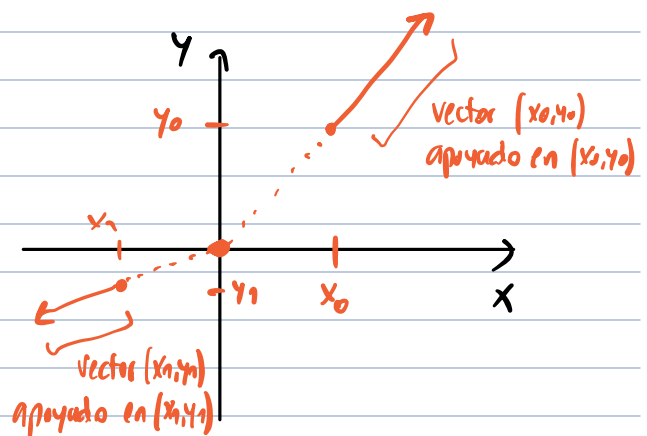 Y
y₀
vector (x₀,y₀)
apoyado en (x₀,y₀)
x₁
y₁
x₀
X
vector (x₁,y₁)
apoyado en (x₁,y₁)